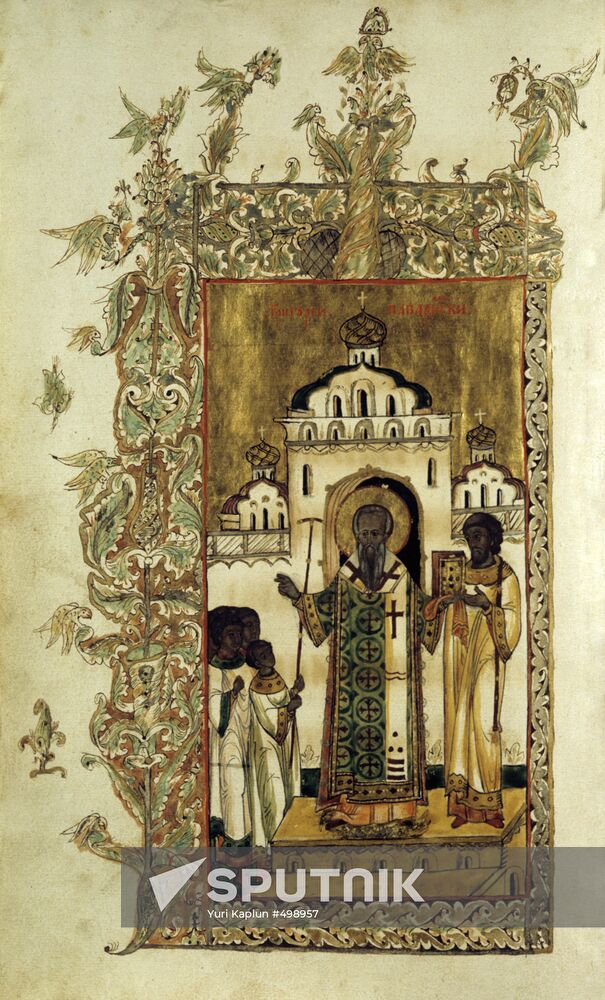 SPUTNIK
Yuri Kaplun #498957